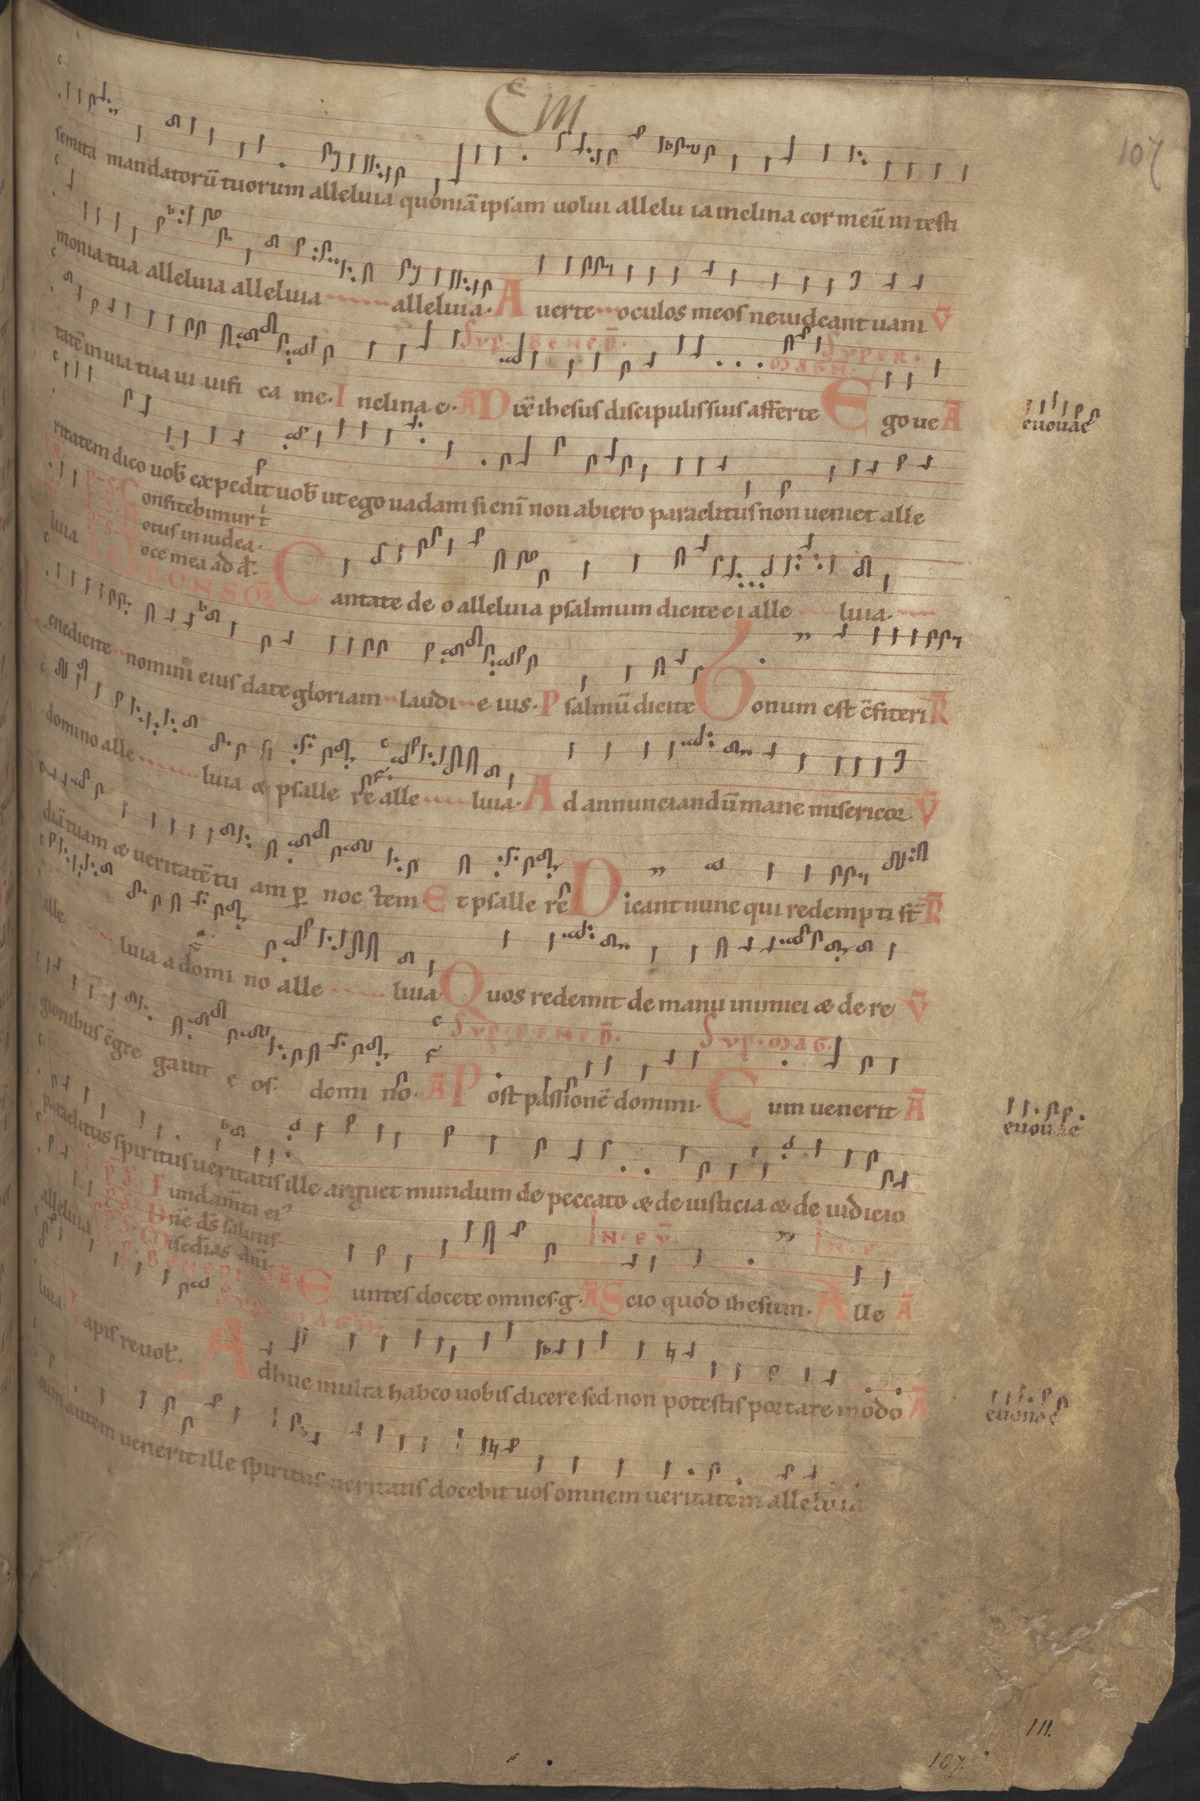 EM
107
semita mandatorū tuorum alleluia quoniā ipsam uolui allelu ia inclina cor meū in testi
monia tua alleluia alleluia alleluia. A uerte oculos meos ne uideant uani V̄
Sup. Bened̄. Super. Magn̄.
tatē in uia tua ui uifi ca me. I nclina e. A Dixē ihesus discipulis suis afferte Ego ue A
euouae
ritatem dico uob̄ expedit uob̄ ut ego uadam si enī non abiero paraclitus non ueniet alle
luia
Confitebimur t̄
Notus in iudea.
Voce mea ad d̄.
RESPONSŌ Cantate de o alleluia psalmum dicite ei alle luia.
enedicite nomini eius date gloriam laudi e ius. P salmū dicite Bonum est c̄fiteri R̄
domino alle luia & psalle re alle luia. A d annunciandū mane misericor V̄
diā tuam & ueritatē tu am p̱ noc tem E t psalle re Dicant nunc qui redempti st̄ R̄
alle luia a domi no alle luia Quos redemit de manu inimici & de re V̄
Sup. Bened̄. Sup. Mag.
gionibus c̄gre gauit e os. domi no. Ā Post passionē domini. Cum uenerit Ā
euouae
paraclitus spiritus ueritatis ille arguet mundum de peccato & de iusticia & de iudicio
alleluia
Ps. Fundam̄ta ei'
Ps. Dn̄e ds̄ salutis
Ps. Misedias dn̄i.
In. ev̄. In. e
Ā Euntes docete omnes. g. Ā Scio quod ihesum. Alle Ā
luia. Lapis reuol̄. Sup. Magn̄.
Adhuc multa habeo uobis dicere sed non potestis portare modo Ā
euouae
cum autem uenerit ille spiritus ueritatis docebit uos omnem ueritatem alleluia
111.
107.